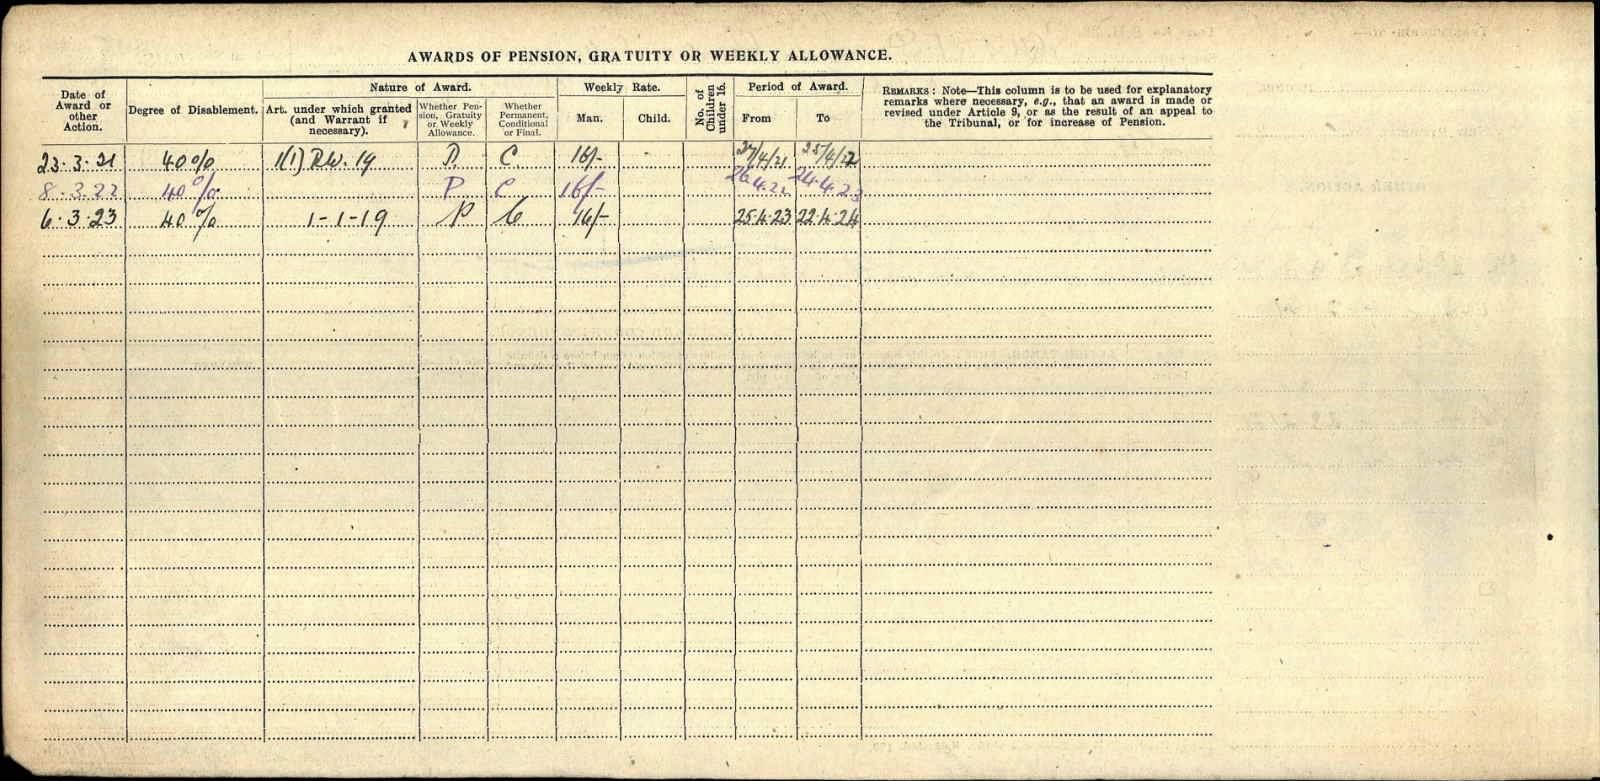 AWARDS OF PENSION, GRATUITY OR WEEKLY ALLOWANCE.
Date of Award or other Action.
Degree of Disablement.
Nature of Award.
Art. under which granted (and Warrant if necessary).
Whether Pension, Gratuity or Weekly Allowance.
Whether Permanent, Conditional or Final.
Weekly Rate.
Man.
Child.
No. of Children under 16.
Period of Award.
From
To
REMARKS: Note—This column is to be used for explanatory
remarks where necessary, e.g., that an award is made or
revised under Article 9, or as the result of an appeal to
the Tribunal, or for increase of Pension.
23.3.21 40% 1(1) R.W. 19 P. C. 16/- 27/4/21 25/4/22
8.3.22 40% P C 16/- 26.4.22 24.4.23
6.3.23 40% 1-1-19 P C 16/- 25.4.23 22.4.24